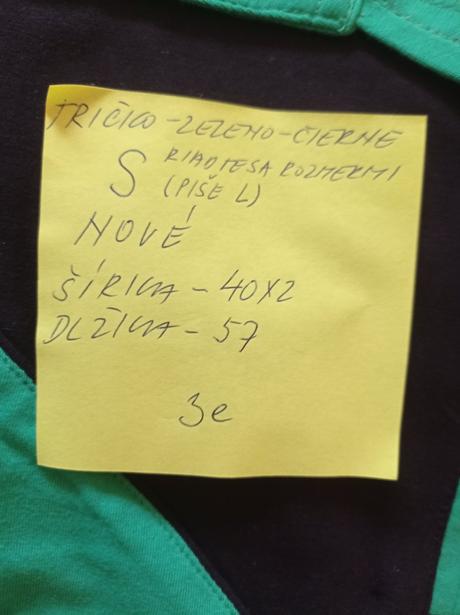 TRIČKO-ZELENO-ČIERNE
S RIAĎTE SA ROZMERMI
(PÍŠE L)
NOVÉ
ŠÍRKA - 40X2
DLŽKA - 57
3e